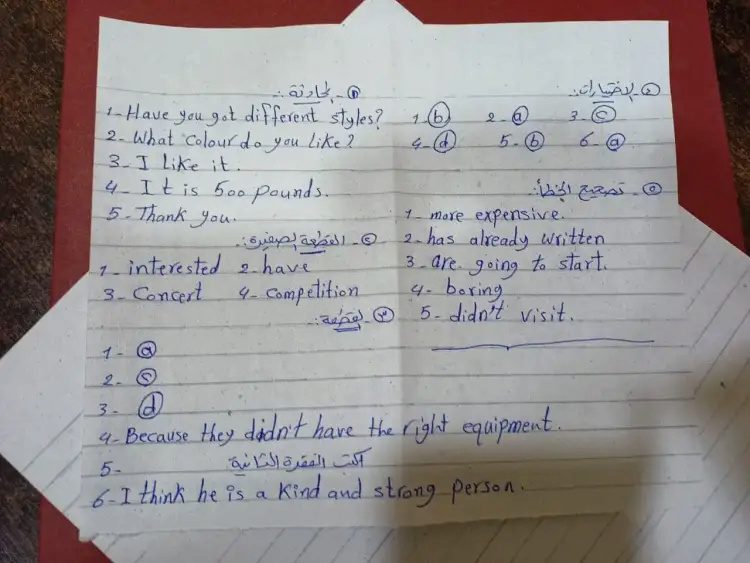 ① - المحادثة :.
1- Have you got different styles?
2- What colour do you like?
3- I like it.
4- It is 500 pounds.
5- Thank you.
② - القطعة الصغيرة :.
1- interested 2- have
3- Concert 4- Competition
③ - القطعة :.
1- ⓐ
2- ⓒ
3- ⓓ
4- Because they didn't have the right equipment.
5- اكتب الفقرة الثانية
6- I think he is a kind and strong person.
- الاختيارات :.
1- ⓑ 2- ⓐ 3- ⓒ
4- ⓓ 5- ⓑ 6- ⓐ
⑤ - تصحيح الخطأ :.
1- more expensive.
2- has already written
3- are going to start.
4- boring
5- didn't visit.